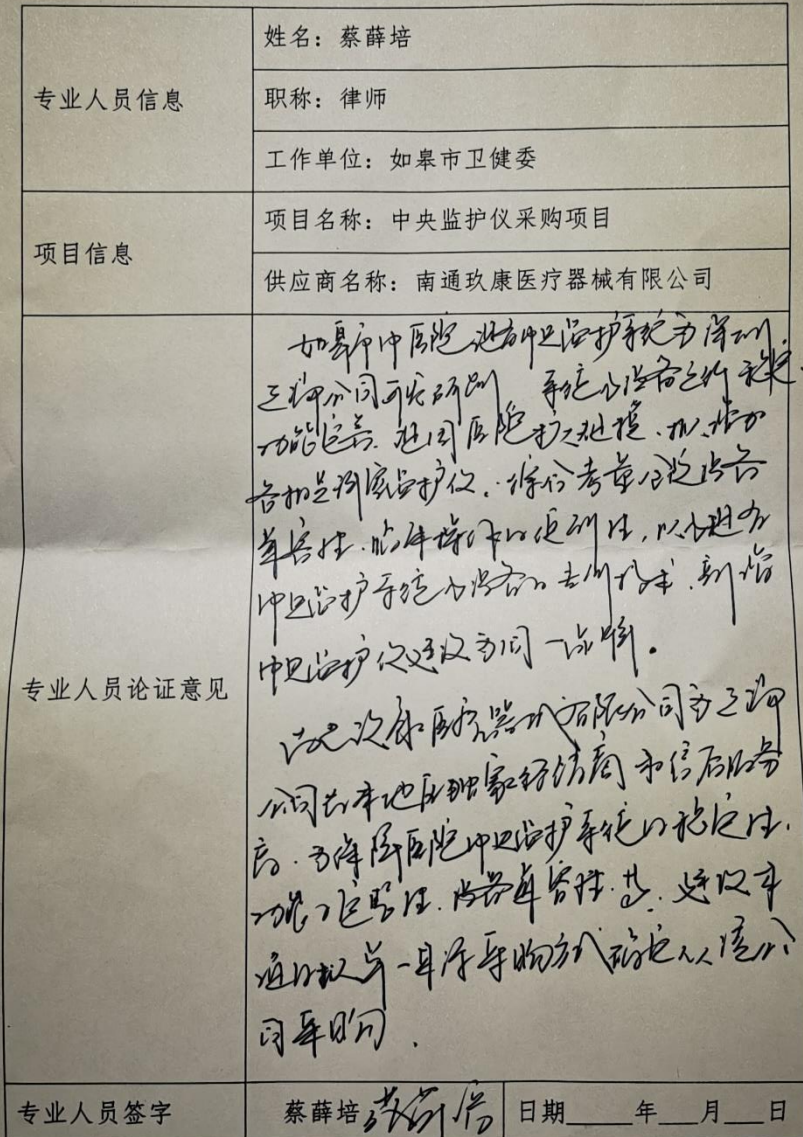 专业人员信息
姓名：蔡薛培
职称：律师
工作单位：如皋市卫健委
项目信息
项目名称：中央监护仪采购项目
供应商名称：南通玖康医疗器械有限公司
专业人员论证意见
如皋市中医院现有中央监护系统为深圳
公司开发研制 系统及设备运行稳定
功能完善
各相监护仪 综合考虑设备
兼容性 临床操作的便利性 以及现有
中央监护系统及设备的专利技术 新增
中央监护仪建议为同一品牌。
康医疗器械有限公司为
公司在本地区独家经销商和售后服务
商 为保障医院中央监护系统的稳定性
功能的完整性 设备兼容性 建议本
项目以单一来源采购方式确定从该公
司采购
专业人员签字
蔡薛培
日期 年 月 日